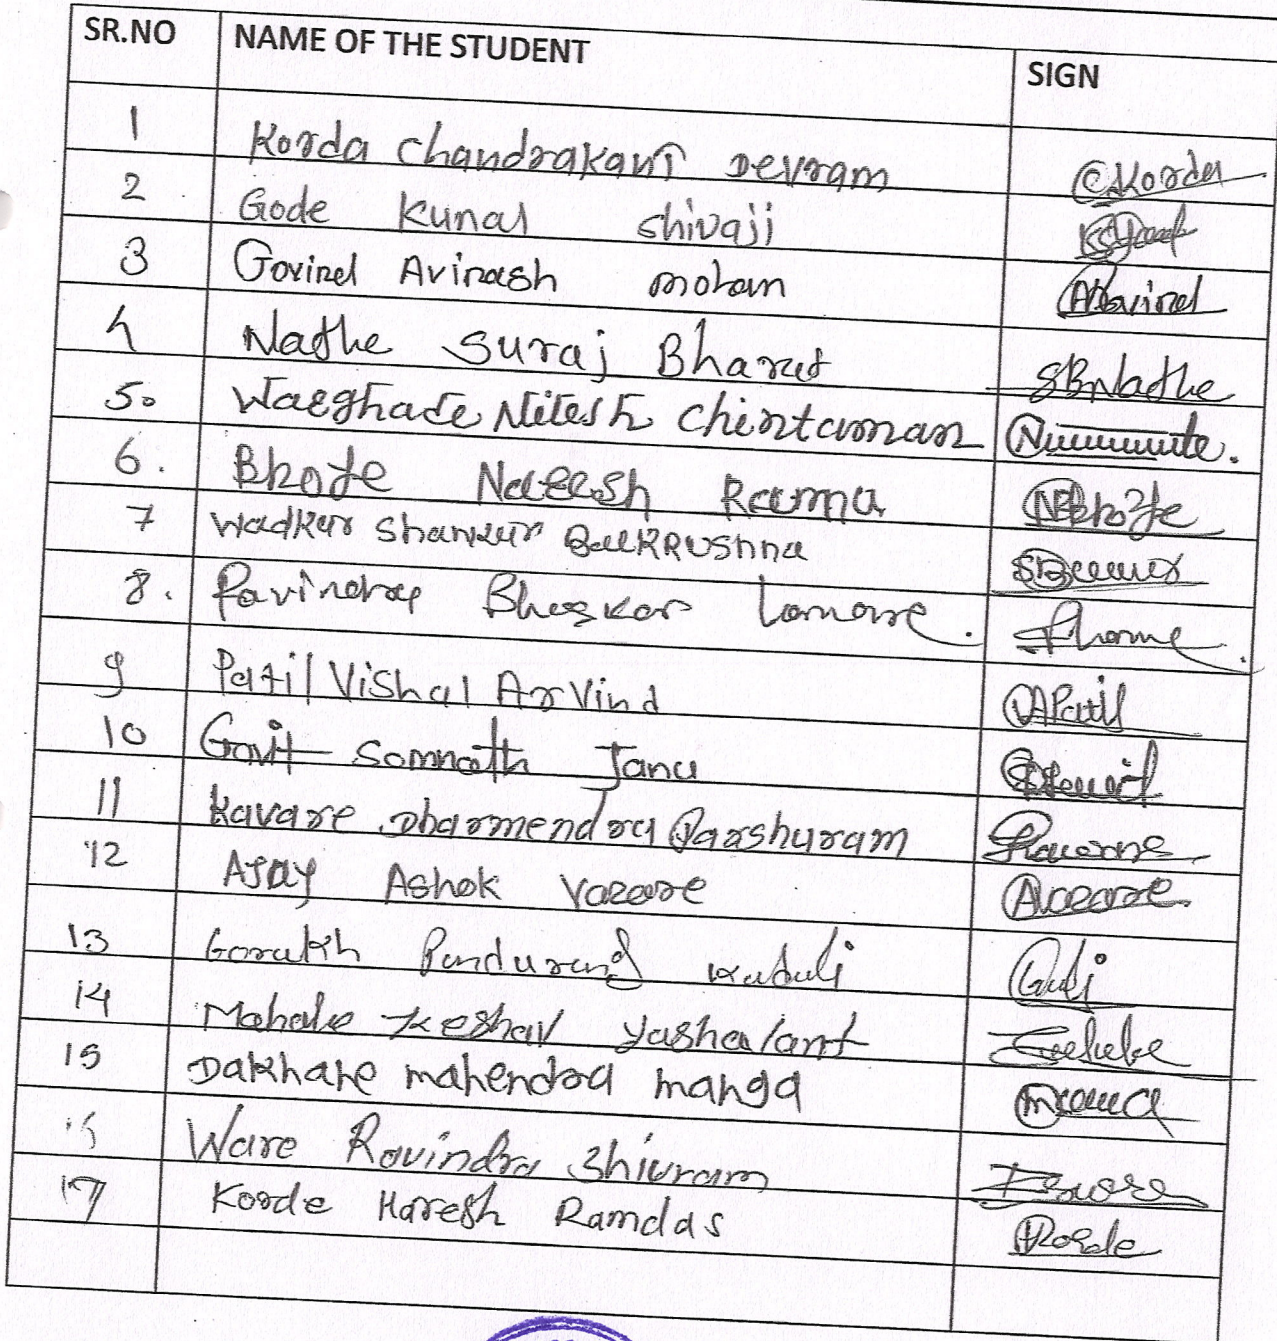 SR.NO NAME OF THE STUDENT SIGN
1 Korda Chandrakant Devram CKorda
2 Gode Kunal Shivaji
3 Govind Avinash mohan AGovind
4 Nathe Suraj Bharat SBNathe
5. Waeghade Nitesh Chintaman
6. Bhoye Naresh Rama NRBhoye
7 Wadkar Shankar BalKRUShna
8. Ravindra Bhaskar Lomare.
9 Patil Vishal Arvind VAPatil
10 Govit Somnath Janu
11 Kavare Dharmendra Parshuram
12 AJay Ashok
13 Gorakh Pandurang
14 Mahale Keshav Yashavant
15 Dakhare mahendra manga
16 Ware Ravindra Shivram
17 Korde Haresh Ramdas HKorde